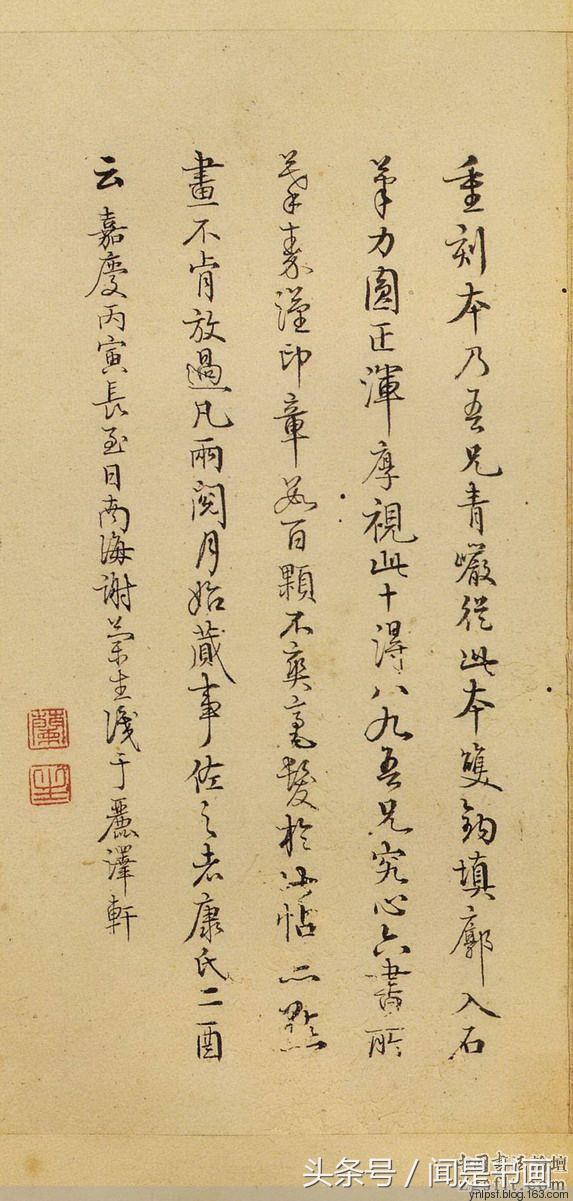 重刻本乃吾兄青巖從此本雙鉤填廓入石
筆力圓正渾厚視此十得八九吾兄究心六書所
摹秦漢印章數百顆不爽毫髮於此帖一點
畫不肯放過凡兩閱月始蕆事佐之者康氏二酉
云嘉慶丙寅長至日南海謝蘭生識于麗澤軒
蘭
生
头条号/闻是书画
ynlpsf.blog.163.com